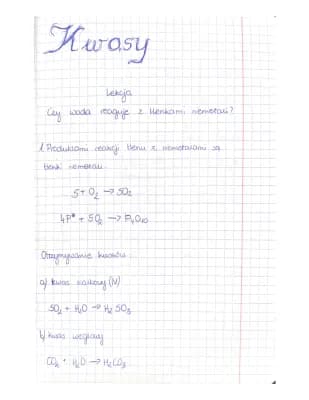 Kwasy
Lekcja
Czy woda reaguje z tlenkami niemetali?
1. Produktami reakcji tlenu z niemetalami są
tlenki niemetali.
S + O₂ → SO₂
4P + 5O₂ → P₄O₁₀
Otrzymywanie kwasów:
a) kwas siarkowy (IV)
SO₂ + H₂O → H₂SO₃
b) kwas węglowy
CO₂ + H₂O → H₂CO₃